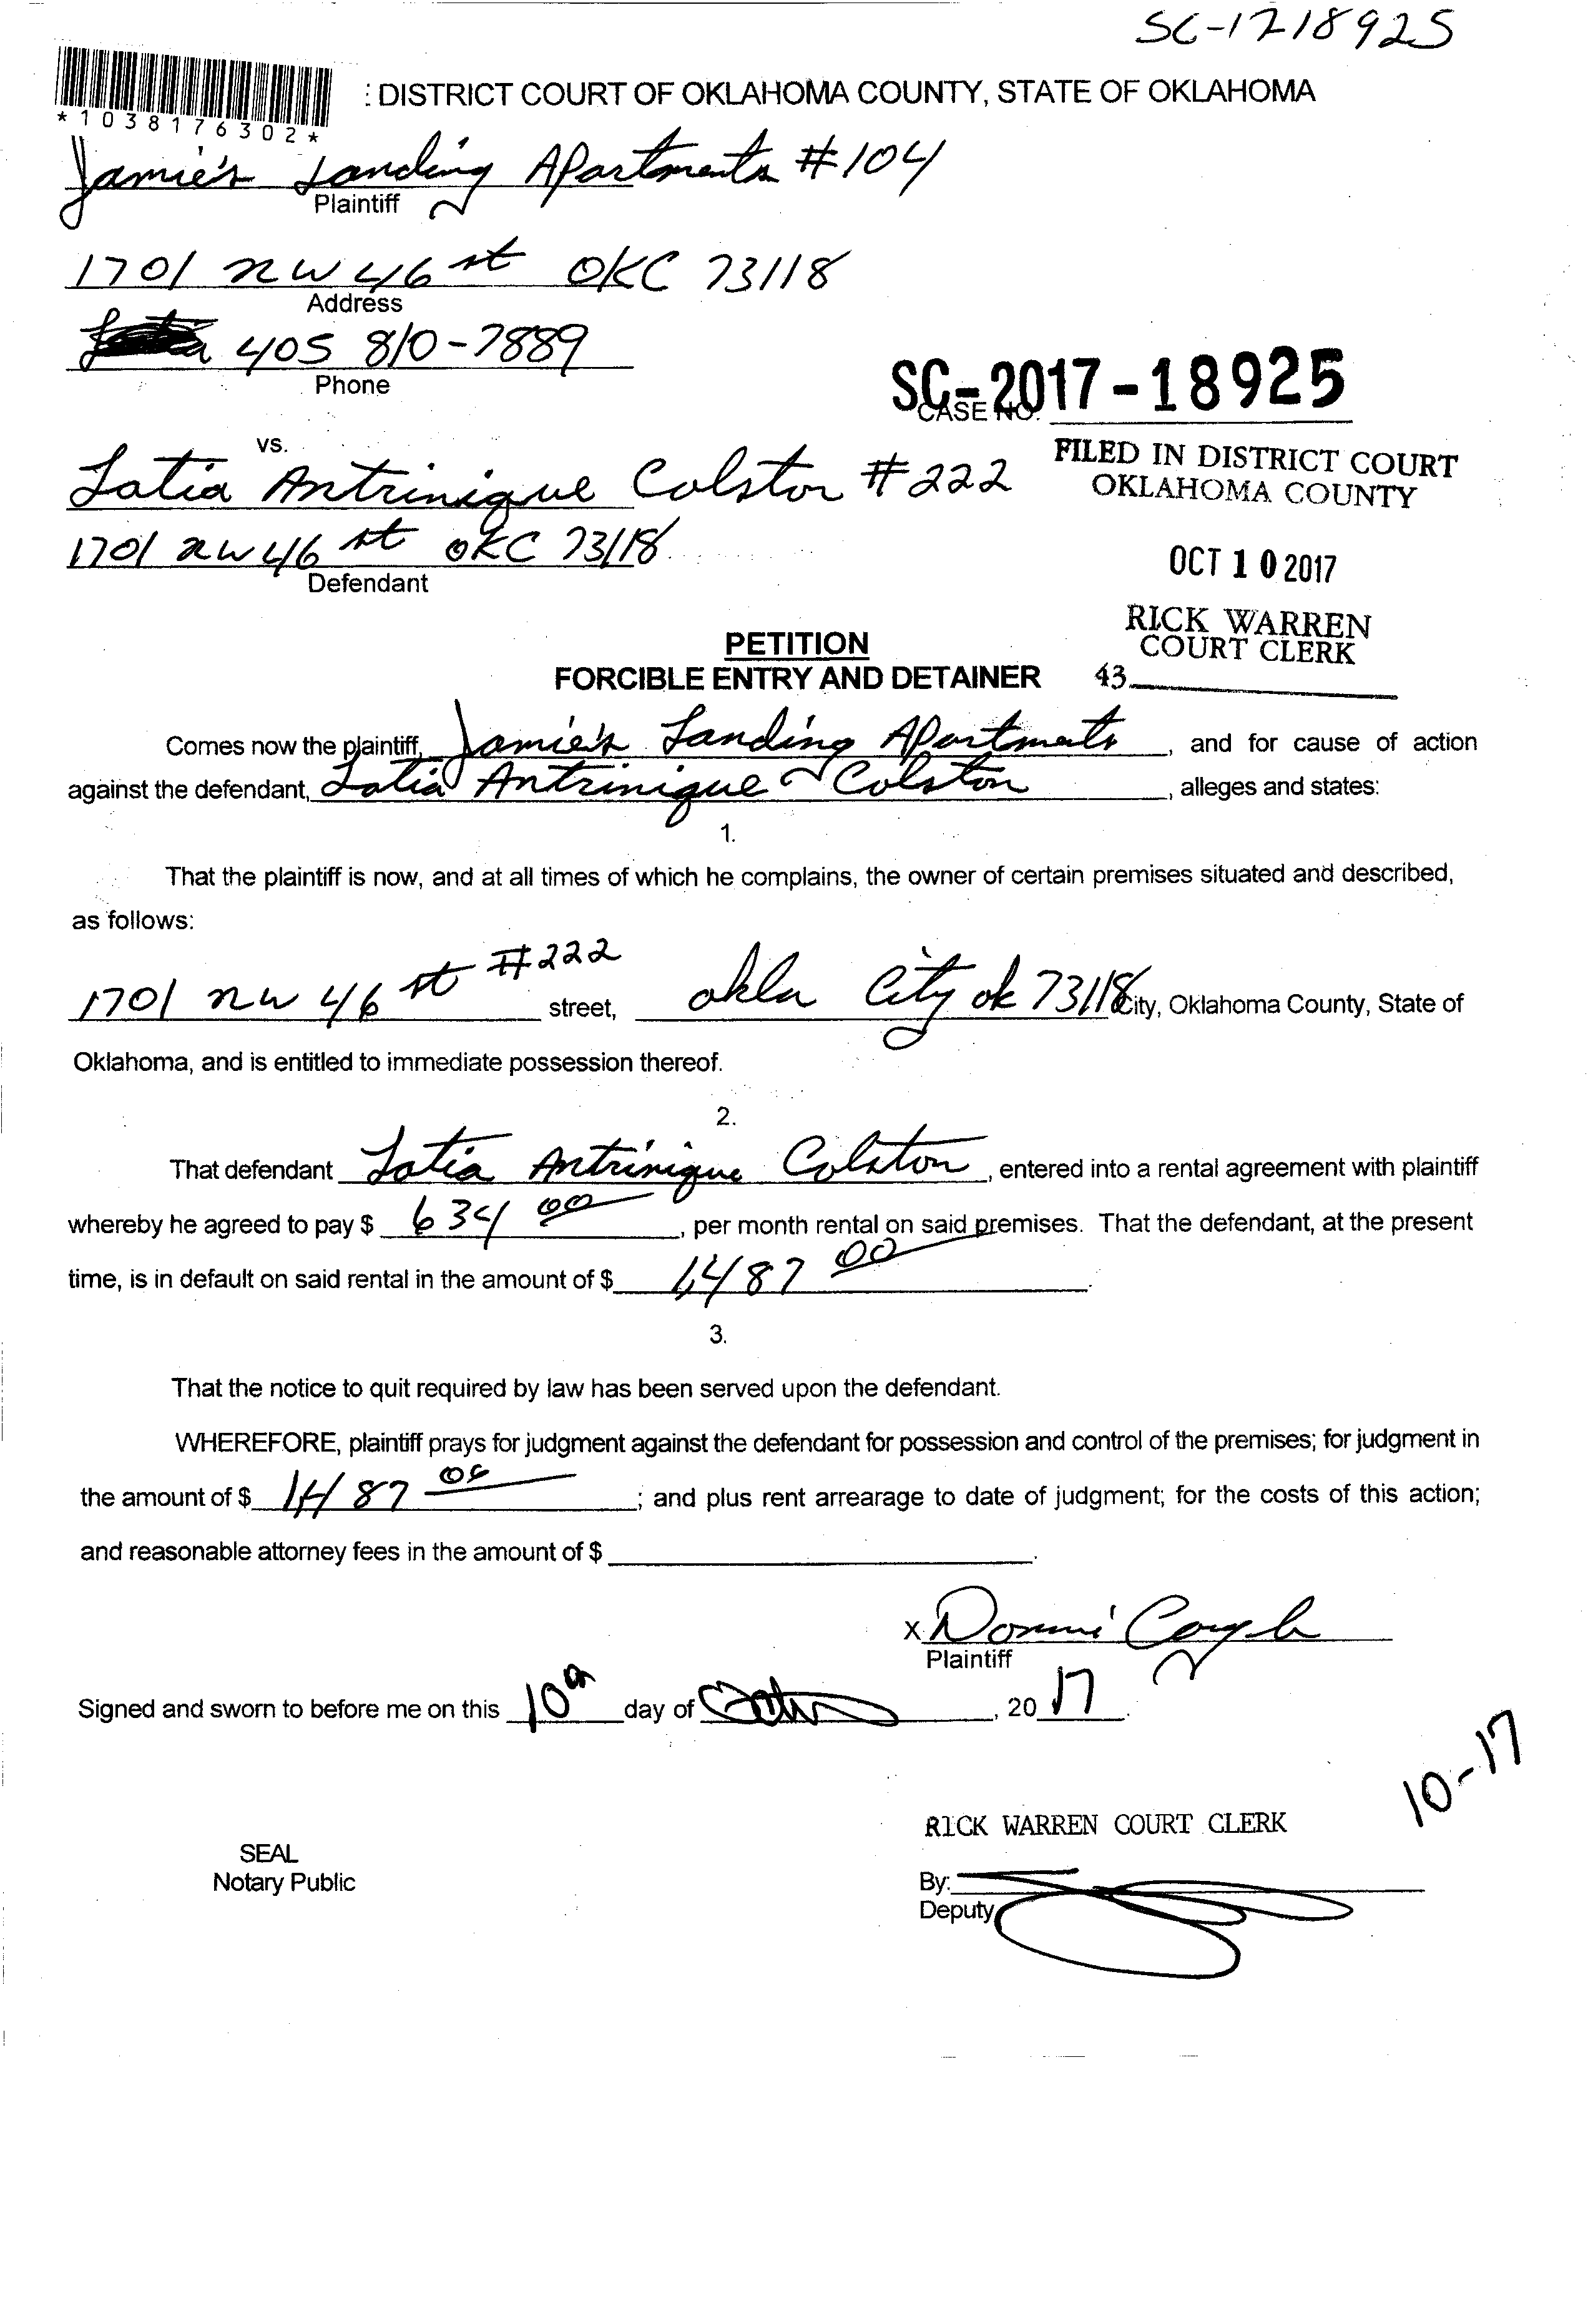 SC-1718925
*1038176302*
: DISTRICT COURT OF OKLAHOMA COUNTY, STATE OF OKLAHOMA
Jamie's Landing Apartments #104
Plaintiff
1701 NW 46 st OKC 73118
Address
405 810-7889
Phone
SC-2017-18925
CASE NO.
vs.
Latia Antrinique Colston #222
FILED IN DISTRICT COURT
OKLAHOMA COUNTY
1701 NW 46 st OKC 73118
Defendant
OCT 10 2017
RICK WARREN
COURT CLERK
43
PETITION
FORCIBLE ENTRY AND DETAINER
Comes now the plaintiff, Jamie's Landing Apartments, and for cause of action
against the defendant, Latia Antrinique Colston, alleges and states:
1.
That the plaintiff is now, and at all times of which he complains, the owner of certain premises situated and described,
as follows:
1701 NW 46 st #222 street, okla City ok 73118 City, Oklahoma County, State of
Oklahoma, and is entitled to immediate possession thereof.
2.
That defendant Latia Antrinique Colston, entered into a rental agreement with plaintiff
whereby he agreed to pay $ 634 00, per month rental on said premises. That the defendant, at the present
time, is in default on said rental in the amount of $ 1,487 00.
3.
That the notice to quit required by law has been served upon the defendant.
WHEREFORE, plaintiff prays for judgment against the defendant for possession and control of the premises; for judgment in
the amount of $ 1487 00; and plus rent arrearage to date of judgment; for the costs of this action;
and reasonable attorney fees in the amount of $ .
X
Plaintiff
Signed and sworn to before me on this 10th day of , 20 17.
10-17
RICK WARREN COURT CLERK
SEAL
Notary Public
By:
Deputy